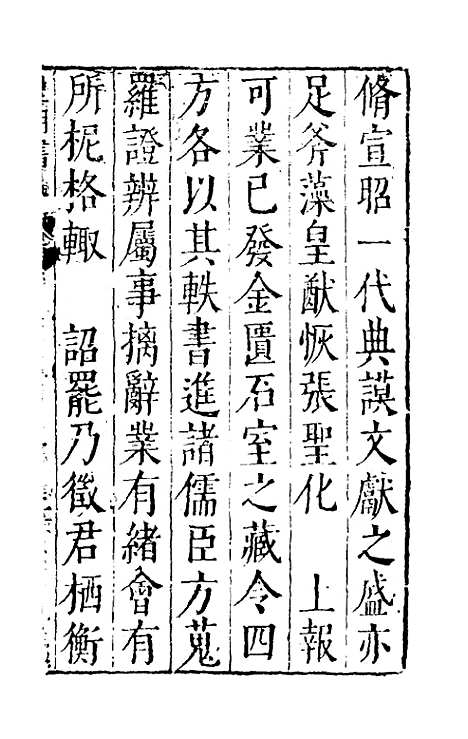 脩宣昭一代典謨文獻之盛亦
足斧藻皇猷恢張聖化　上報
可業已發金匱石室之藏令四
方各以其軼書進諸儒臣方蒐
羅證辨屬事摛辭業有緒會有
所柅格輙　詔罷乃徵君栖衡